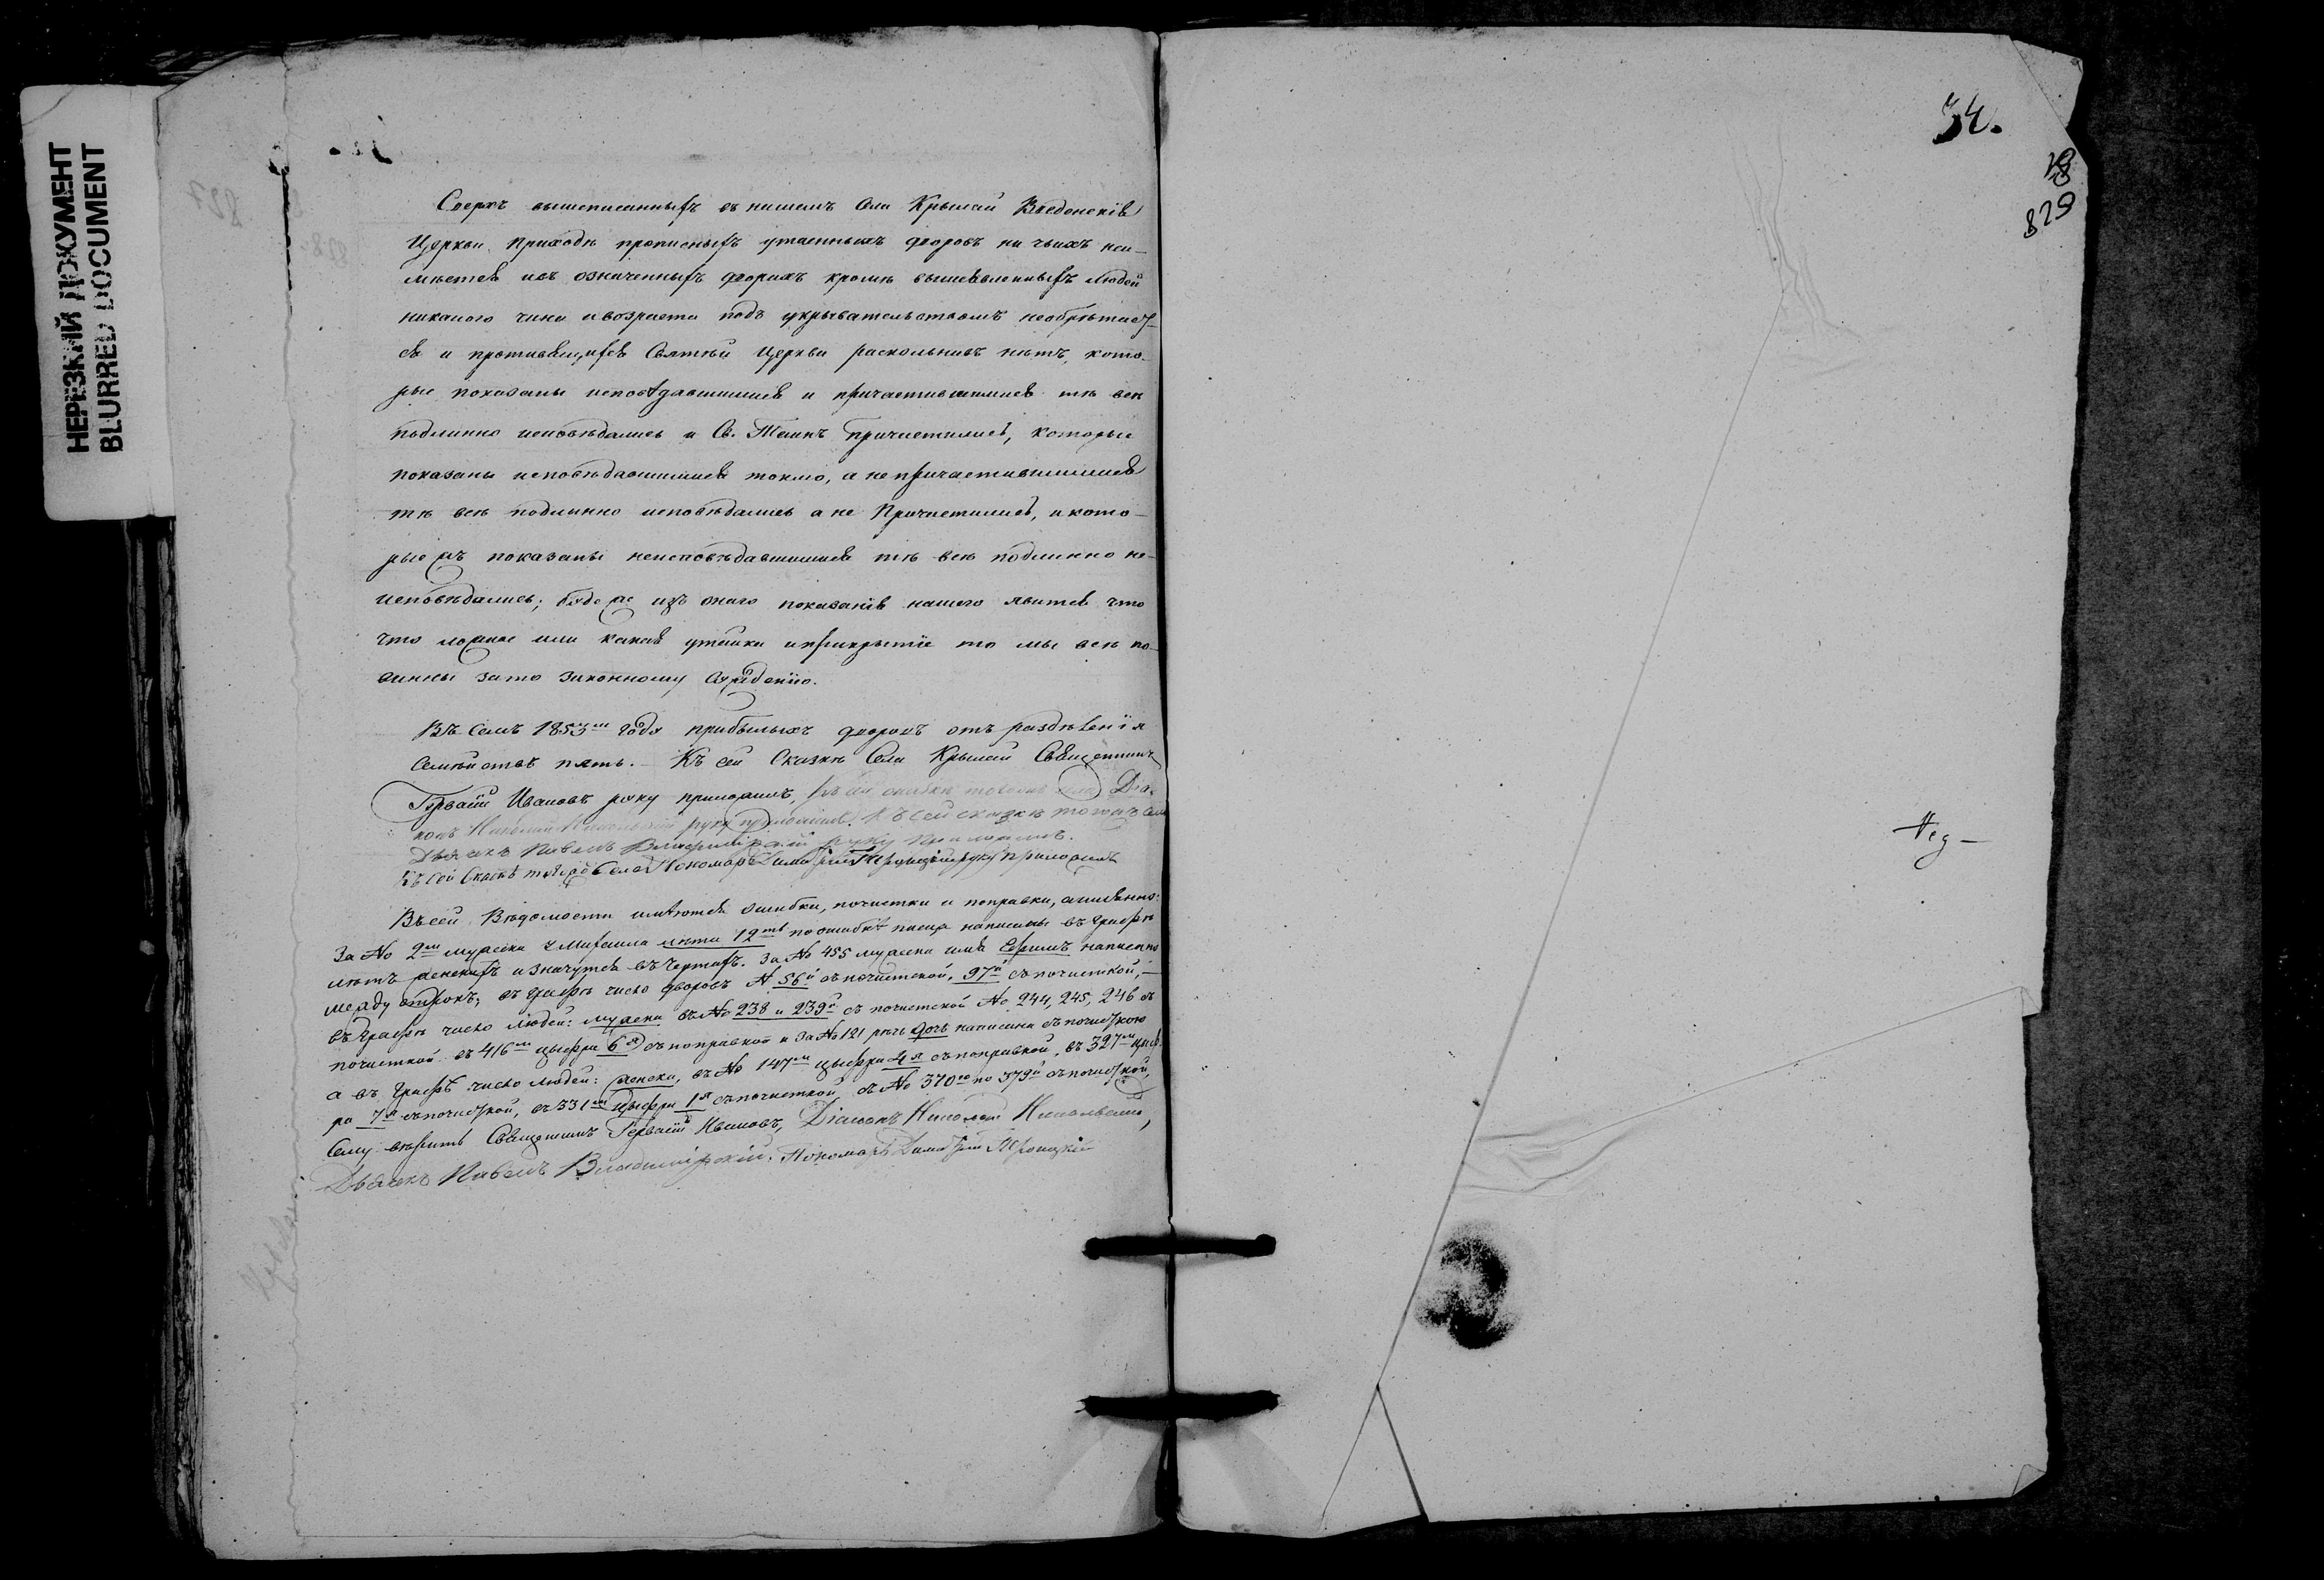 НЕРЕЗКИЙ ДОКУМЕНТ
BLURRED DOCUMENT
Сверхъ вышеписанныхъ въ нашемъ Села Крымъ Введенскія
Церкви приходѣ прописныхъ утаенныхъ дворовъ ни чьихъ неи-
мѣется ивъ означенныхъ дворахъ кромѣ вышеявленныхъ людей
никакого чина ивозраста подъ укрывательствомъ необрѣтает-
ся и противящихся Святѣй Церкви раскольникъ нѣтъ, кото-
рые показаны исповѣдавшимися и причастившимися тѣ всѣ
подлинно исповѣдались и Св. Таинъ причастились, которые
показаны исповѣдавшимися токмо, а непричастившимися
тѣ всѣ подлинно исповѣдались а не Причастились, икото-
рые жъ показаны неисповѣдавшимися тѣ всѣ подлинно не-
исповѣдались; буде же изъ онаго показанія нашего явится что
что ложное или какая утайка иприкрытіе то мы всѣ по-
винны зато законному сужденію.
Въ семъ 1853м году прибылыхъ дворовъ отъ раздѣленія
Семействъ пять. Къ сей Сказкѣ Села Священникъ
Гервасій Ивановъ руку приложилъ, Къ сей сказкѣ тогожъ села Діа-
конъ Николай Никольскій руку приложилъ. Къ сей сказкѣ тогожъ села
Дьячекъ Павелъ Владимірскій руку приложилъ.
Къ сей Сказкѣ тогоже Села Пономарь Димитрій Троицкій руку приложилъ
Въ сей Вѣдомости имѣются ошибки, почистки и поправки, аименно:
За № 2м мужеска Михаила лѣта 12ть поошибкѣ писца написаны въ графѣ
лѣтъ женскихъ изначутся въ чертахъ. За № 455 мужеска имя Ефимъ написано
между строкъ; въ графѣ число дворовъ № 56й съпочисткой, 97й съпочисткой,—
въ графѣ число людей: мужеска въ № 238 и 239й съ почисткой № 244, 245, 246 съ
почисткой въ 416м цыфра 6я съпоправкой и За № 121 рѣчь дочь написана съпочисткою
а въ графѣ число людей: женска, въ № 147м цыфра 4я съпоправкой, въ 327м цыф-
ра 7я съпочисткой, въ 331м цыфра 1я съпочисткой, съ № 370го по 379й съпочисткой,
Сему вѣрить Священникъ Гервасій Ивановъ, Діаконъ Николай Никольскій,
Дьячекъ Павелъ Владимірскій. Пономарь Димитрій Троицкій
34.
829